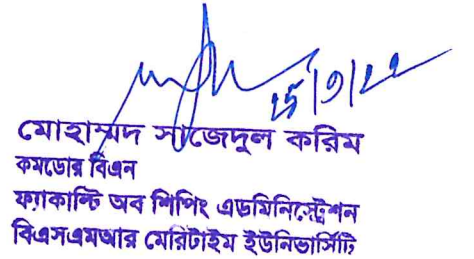 মোহাম্মদ সাজেদুল করিম
কমডোর বিএন
ফ্যাকাল্টি অব শিপিং এডমিনিস্ট্রেশন
বিএসএমআর মেরিটাইম ইউনিভার্সিটি